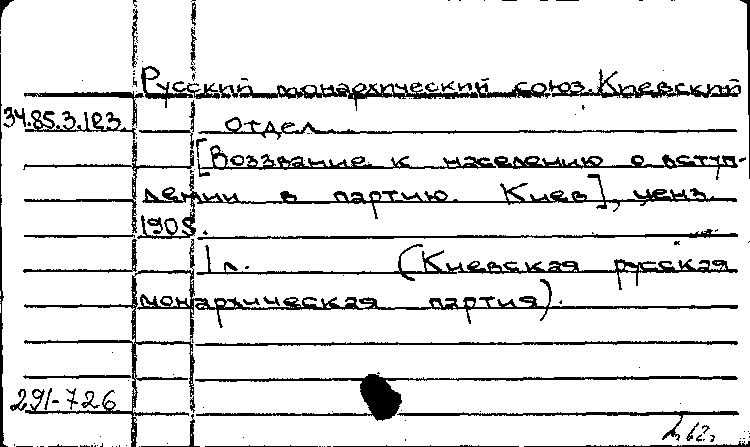 Русский монархический союз. Киевский
34.85.3.123. отдел...
[Воззвание к населению о вступ-
лении в партию. Киев], ценз.
1905.
1 л. (Киевская русская
монархическая партия).
291-726